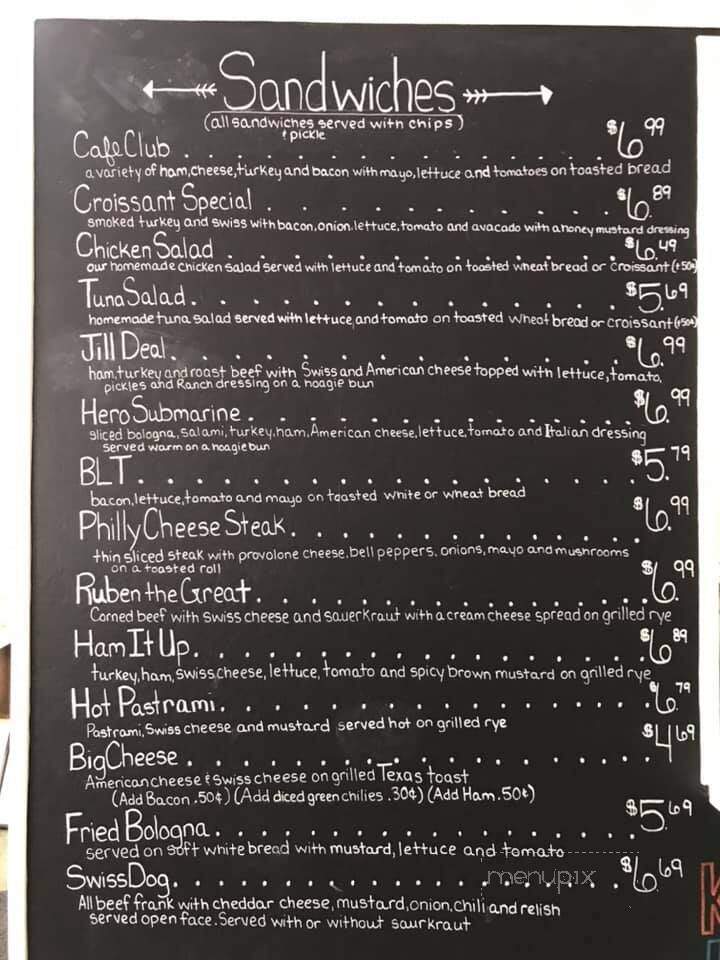 Sandwiches
(all sandwiches served with chips)
& pickle
Cafe Club . . . . . . . . . . . . $6.99
a variety of ham, cheese, turkey and bacon with mayo, lettuce and tomatoes on toasted bread
Croissant Special . . . . . . . . . . . $6.89
smoked turkey and swiss with bacon, onion, lettuce, tomato and avacado with a honey mustard dressing
Chicken Salad . . . . . . . . . . . . . $6.49
our homemade chicken salad served with lettuce and tomato on toasted wheat bread or croissant (+50¢)
Tuna Salad . . . . . . . . . . . . . . $5.69
homemade tuna salad served with lettuce and tomato on toasted wheat bread or croissant (+50¢)
Jill Deal . . . . . . . . . . . . . . $6.99
ham, turkey and roast beef with Swiss and American cheese topped with lettuce, tomato,
pickles and Ranch dressing on a hoagie bun
Hero Submarine . . . . . . . . . . . . . $6.99
sliced bologna, salami, turkey, ham, American cheese, lettuce, tomato and Italian dressing
served warm on a hoagie bun
BLT . . . . . . . . . . . . . . . . . $5.79
bacon, lettuce, tomato and mayo on toasted white or wheat bread
Philly Cheese Steak . . . . . . . . . . . $6.99
thin sliced steak with provolone cheese, bell peppers, onions, mayo and mushrooms
on a toasted roll
Ruben the Great . . . . . . . . . . . . . $6.99
Corned beef with swiss cheese and sauerkraut with a cream cheese spread on grilled rye
Ham It Up . . . . . . . . . . . . . . . $6.89
turkey, ham, swiss cheese, lettuce, tomato and spicy brown mustard on grilled rye
Hot Pastrami . . . . . . . . . . . . . . $6.79
Pastrami, Swiss cheese and mustard served hot on grilled rye
Big Cheese . . . . . . . . . . . . . . . $4.69
American cheese & swiss cheese on grilled Texas toast
(Add Bacon .50¢) (Add diced green chilies .30¢) (Add Ham .50¢)
Fried Bologna . . . . . . . . . . . . . . $5.69
served on soft white bread with mustard, lettuce and tomato
Swiss Dog . . . . . . . . . . . . . . . $6.69
menupix
All beef frank with cheddar cheese, mustard, onion, chili and relish
served open face. Served with or without saurkraut